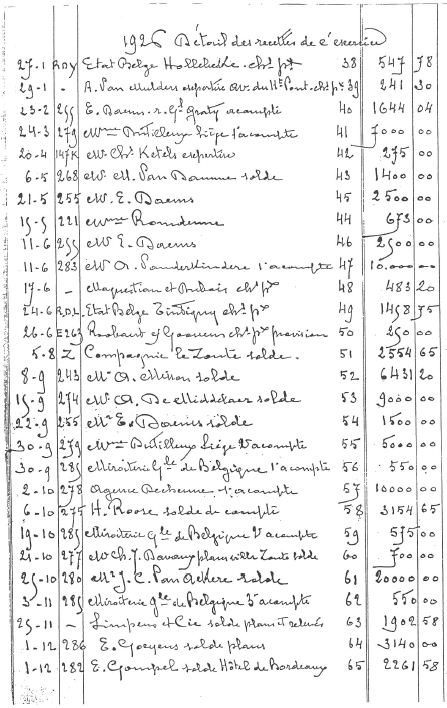 1926 Détail des recettes de l'exercice
27-1 Rny Etat Belge Hollebeke chs px 38 547 78
29-1 - A. Van Mulders expertise av. du Pont. chs px 39 241 30
23-2 255 E. Daems. r. Gl Gratry acompte 40 1644 04
24-3 279 Mme Dutilleux Liège 1'acompte 41 7000 00
20-4 147K M. Chs Ketels expertise 42 275 00
6-5 268 M. M. Van Damme solde 43 1400 00
21-5 255 M. E. Daems 45 2500 00
15-5 221 Mme Romdenne 44 673 00
11-6 255 M. E. Daems 46 2500 00
11-6 283 M. A. Vanderkindere 1'acompte 47 10.000 00
17-6 - Maquestiau et Dubois chs px 48 483 20
24-6 R.D.L. Etat Belge Tintigny chs px 49 1458 75
26-6 E263 & Goossens chs px provision 50 250 00
5.8 Z Compagnie le Zoute solde. 51 2554 65
8-9 243 Mr A. solde 52 6431 20
15-9 274 M. A. De Middelaer solde 53 9000 00
22-9 255 M. E. Daems solde 54 1500 00
30-9 279 Mme Dutilleux Liège 2'acompte 55 5000 00
30-9 285 Miroiterie Gle de Belgique 1'acompte 56 550 00
2-10 278 Agence Dechenne 1'acompte 57 10000 00
6-10 275 H. Roose solde de compte 58 3154 65
19-10 285 Miroiterie Gle de Belgique 2'acompte 59 575 00
21-10 277 M. Ch. J. plans villa Zoute solde 60 700 00
25-10 280 Mr J. C. Van Ackere solde 61 20000 00
3-11 285 Miroiterie gle de Belgique 3'acompte 62 550 00
25-11 - Simpens et Cie solde plans et relevés 63 1902 58
1-12 286 E. Goeyens solde plans 64 3140 00
1-12 282 E. Gompel solde Hôtel de Bordeaux 65 2261 58